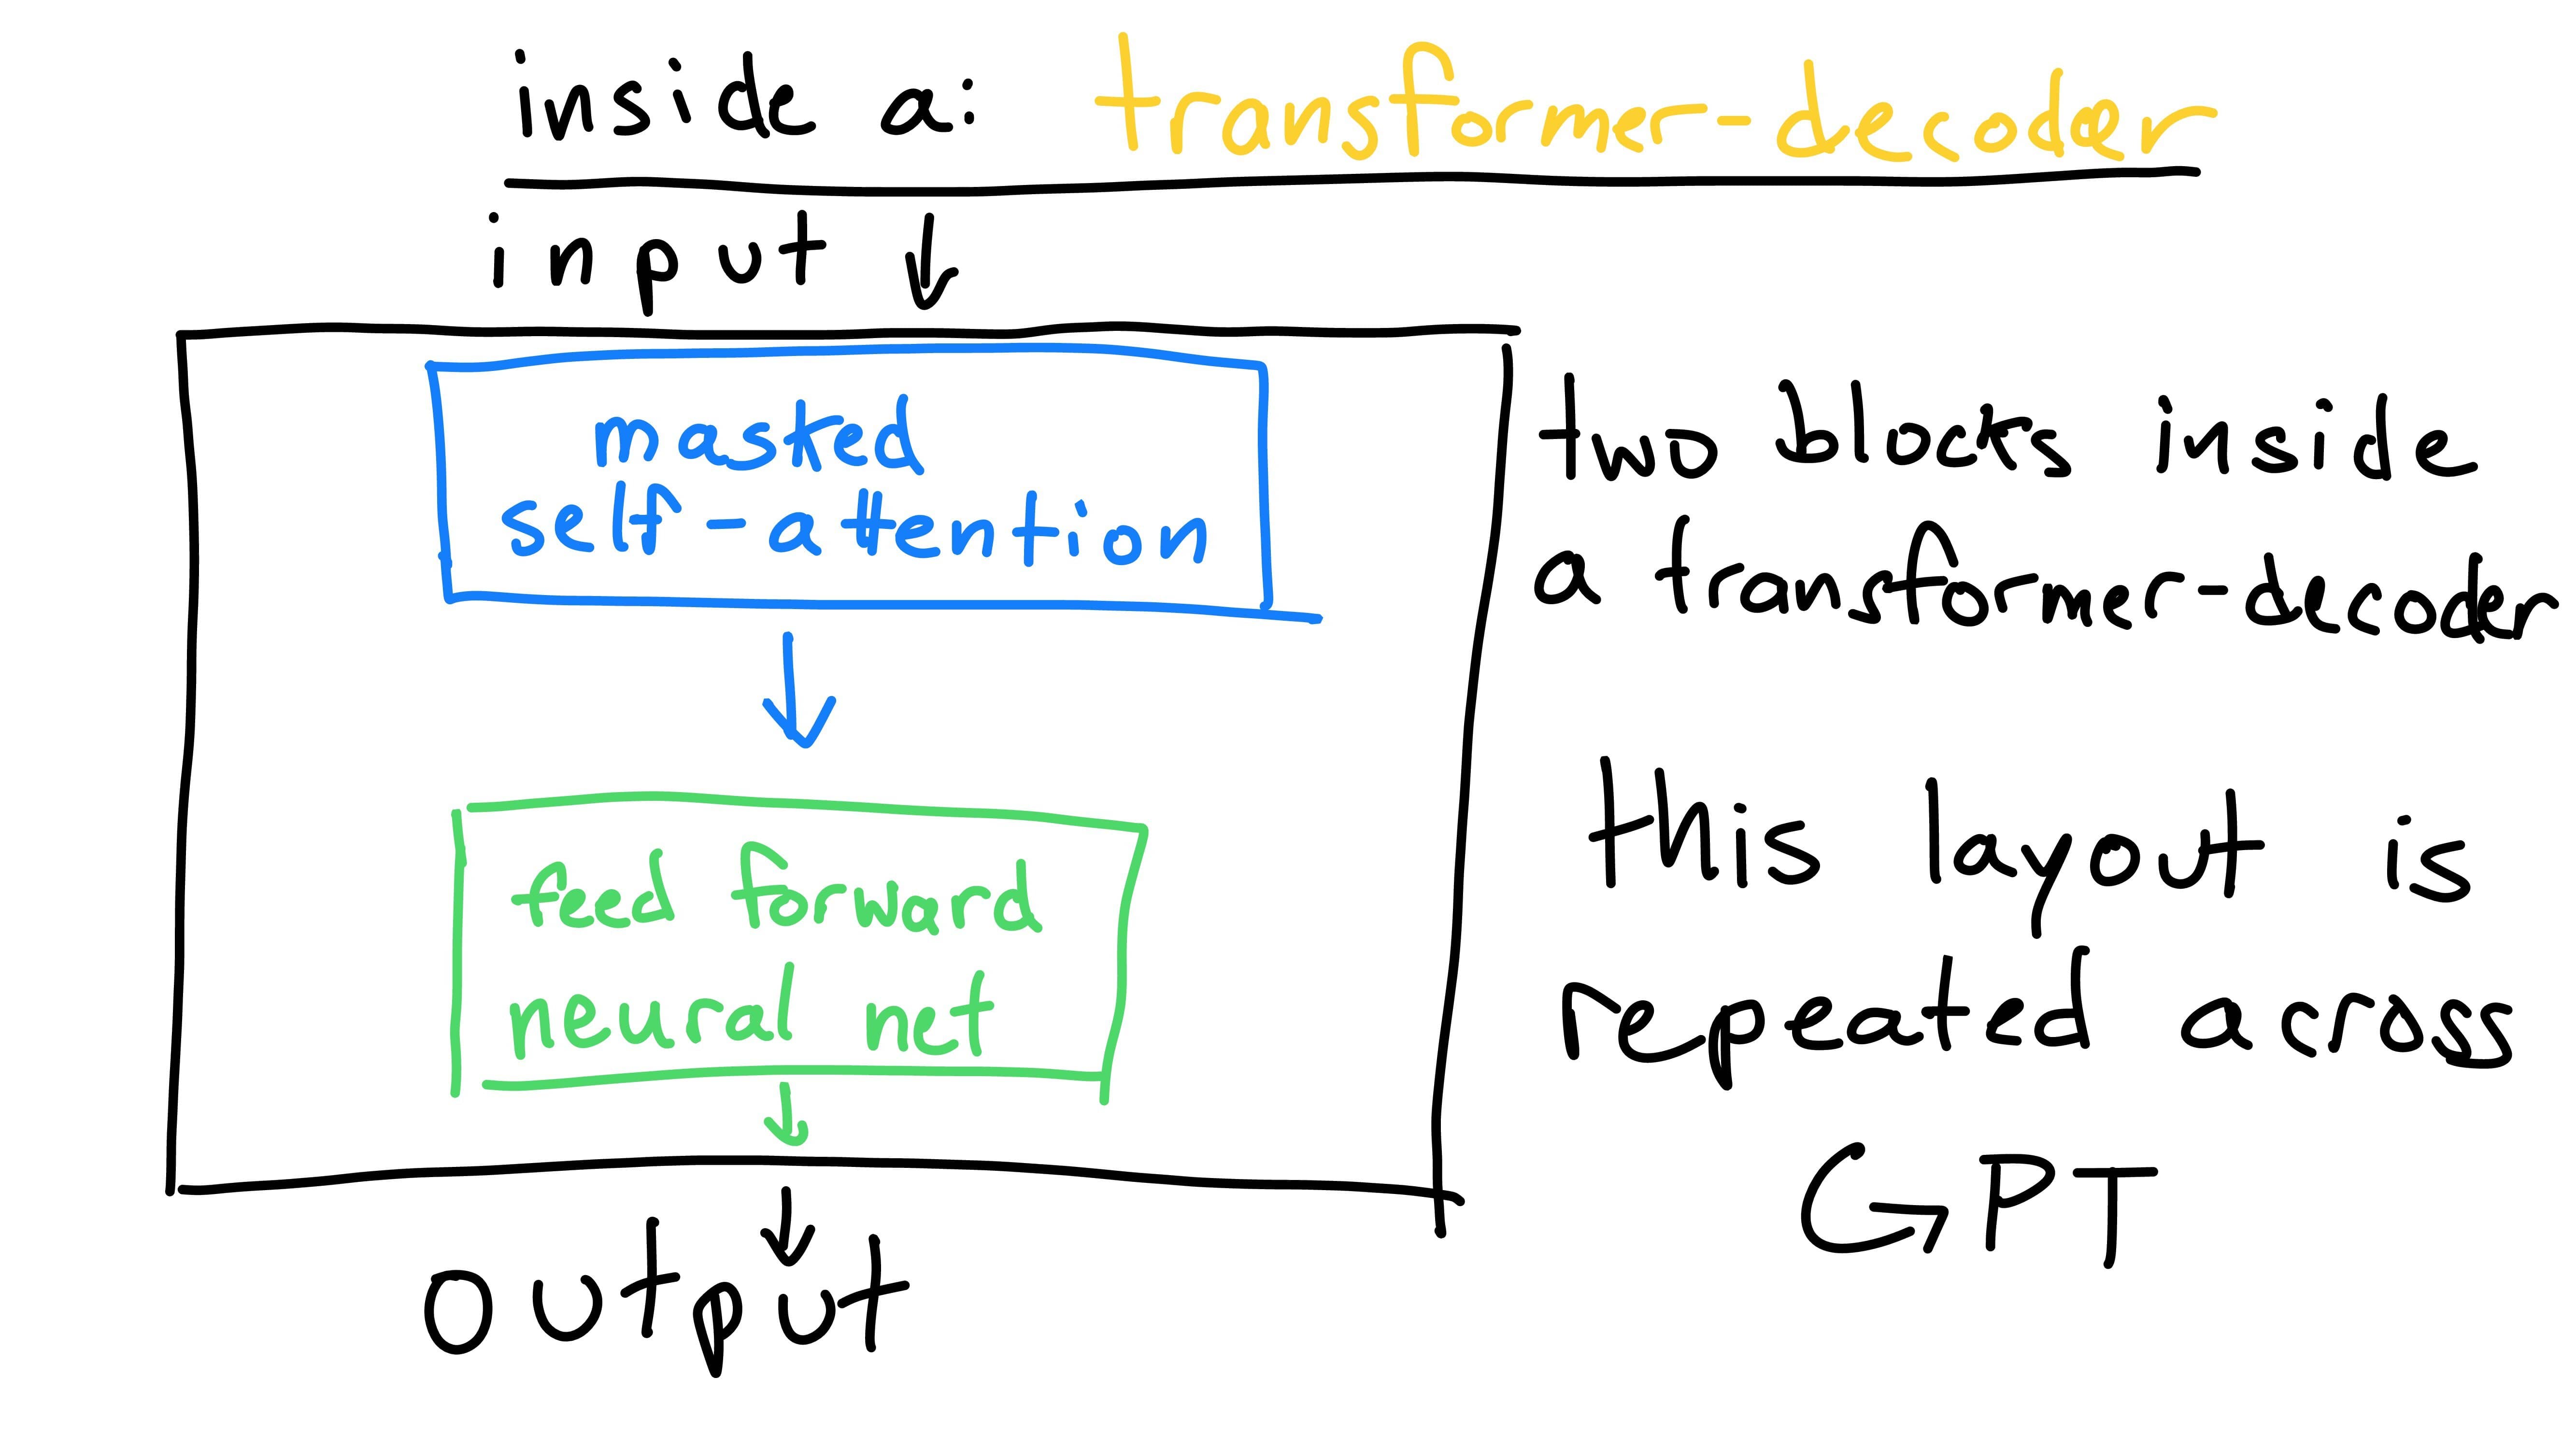 inside a: transformer-decoder
input
masked
self-attention
feed forward
neural net
output
two blocks inside
a transformer-decoder
this layout is
repeated across
GPT